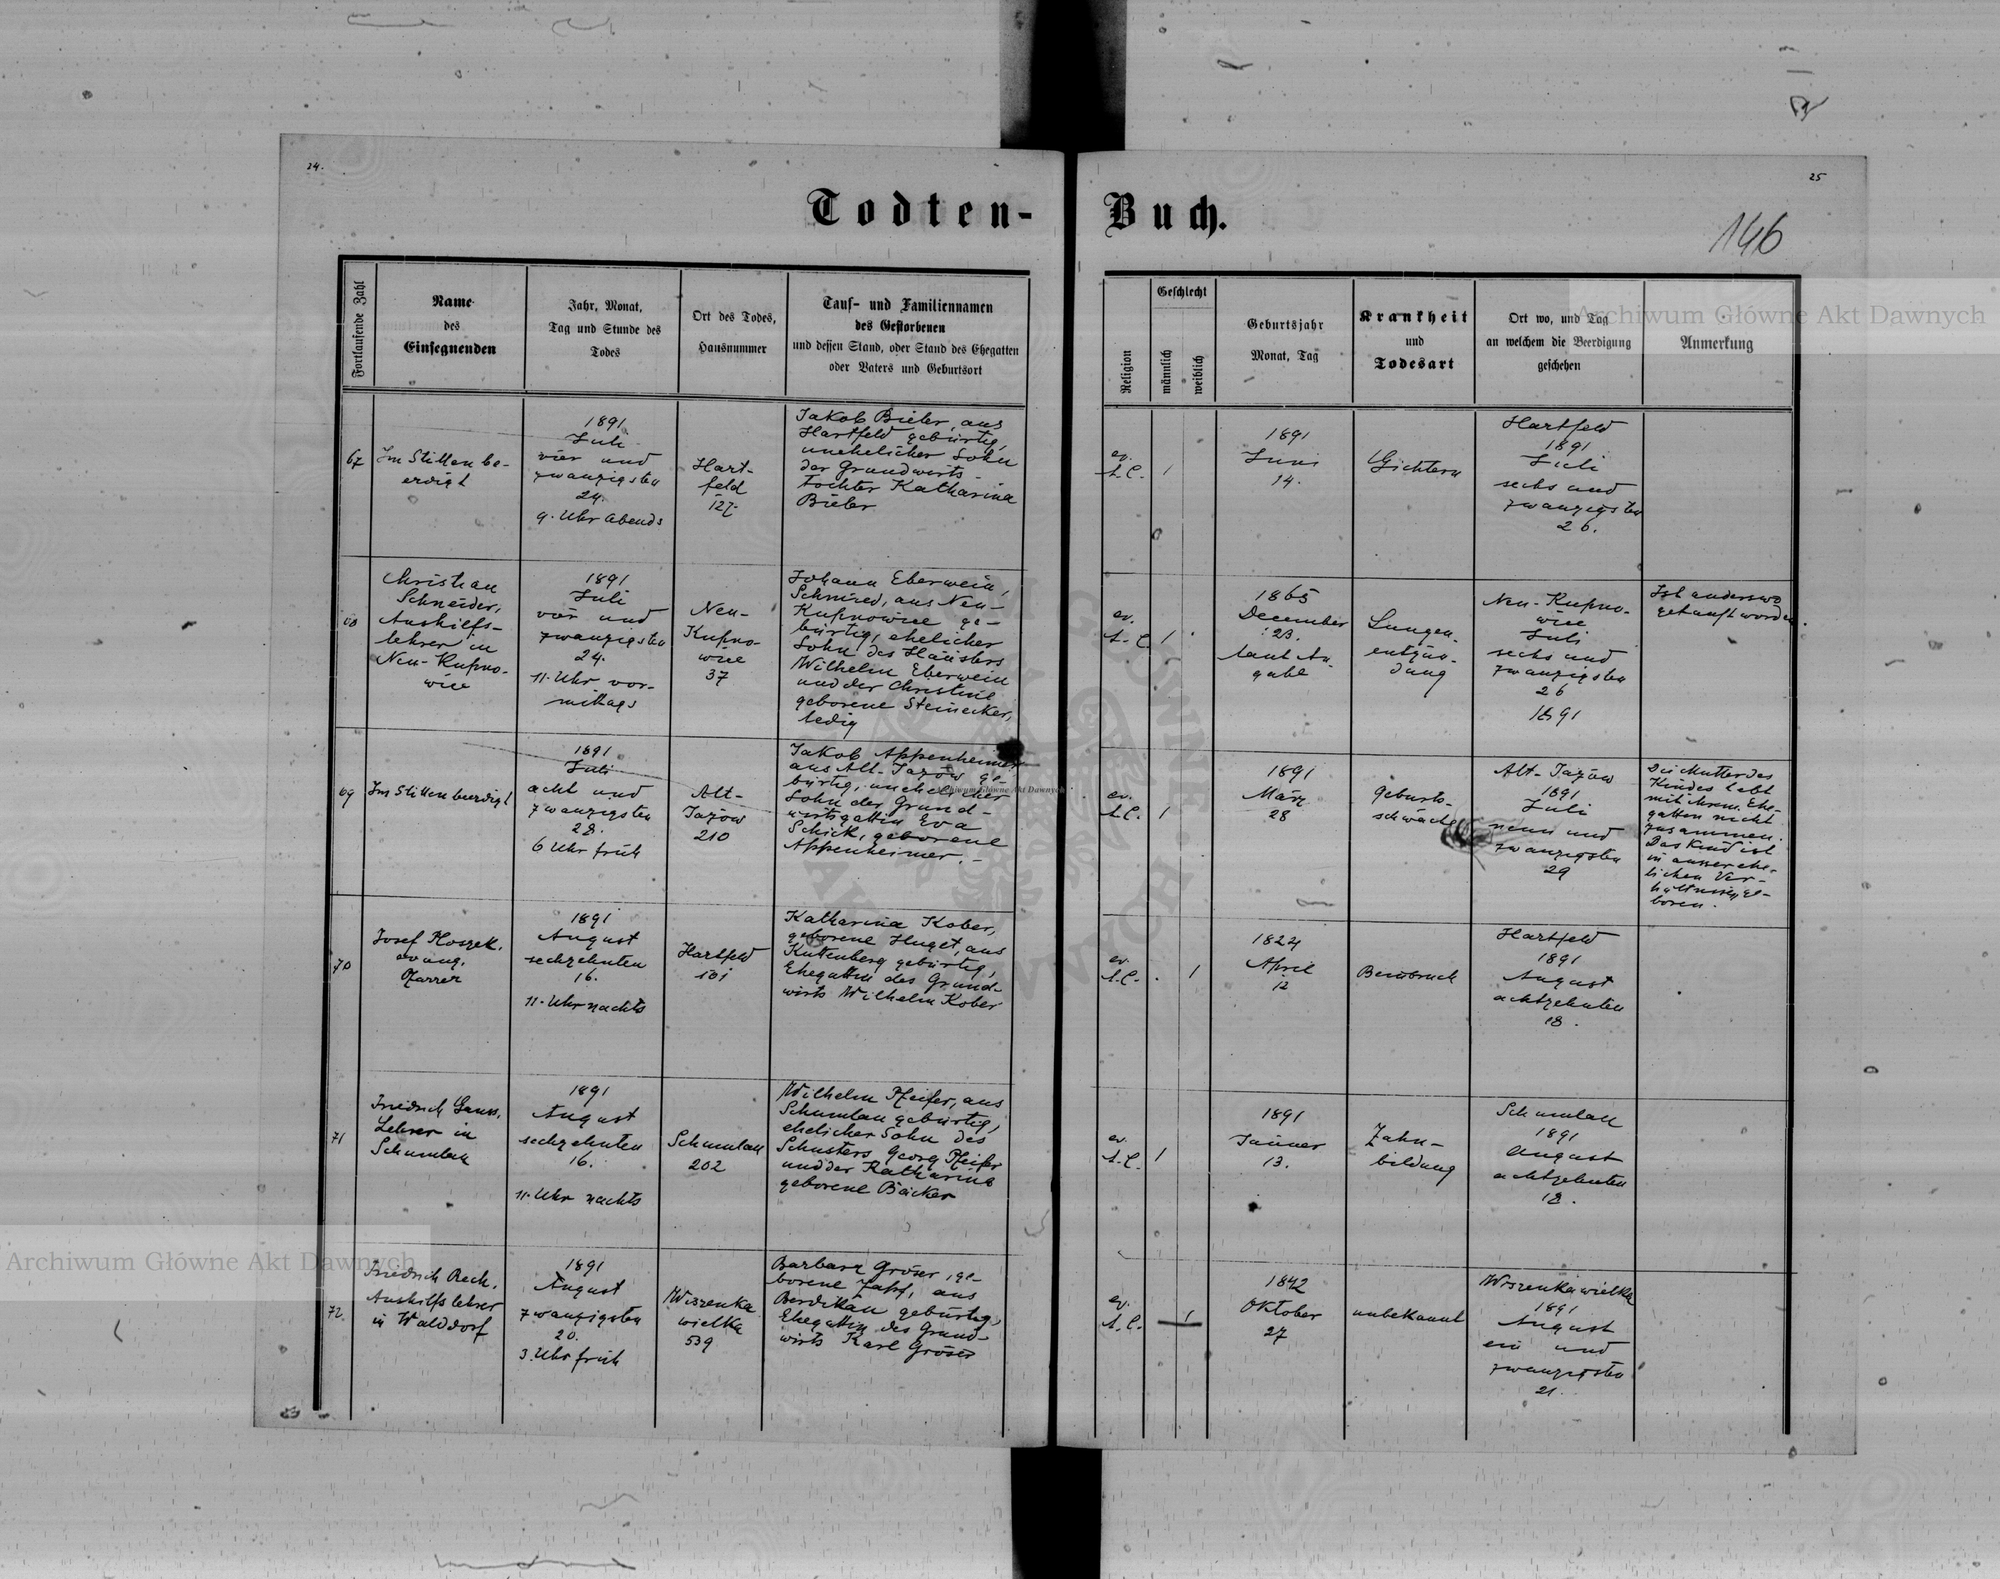 24.
25
Todten-
Buch.
146
Fortlaufende Zahl
Name
des
Einsegnenden
Jahr, Monat,
Tag und Stunde des
Todes
Ort des Todes,
Hausnummer
Tauf- und Familiennamen
des Gestorbenen
und dessen Stand, oder Stand des Ehegatten
oder Vaters und Geburtsort
Religion
Geschlecht
männlich
weiblich
Geburtsjahr
Monat, Tag
Krankheit
und
Todesart
Ort wo, und Tag
an welchem die Beerdigung
geschehen
Anmerkung
67
Im Stillen be-
erdigt
1891
Juli
vier und
zwanzigsten
24.
9. Uhr Abends
Hart-
feld
127.
Jakob Bieler, aus
Hartfeld gebürtig,
unehelicher Sohn
der Grundwirts-
tochter Katharina
Bieler
ev.
A.C.
1
1891
Juni
14.
Gichtern
Hartfeld
1891
Juli
sechs und
zwanzigsten
26.
68
Christian
Schneider,
Aushilfs-
lehrer in
Neu-Kupno-
wice
1891
Juli
vier und
zwanzigsten
24.
11. Uhr vor-
mittags
Neu-
Kupno-
wice
37
Johann Eberwein,
Schmied, aus Neu-
Kupnowice ge-
bürtig, ehelicher
Sohn des Häuslers
Wilhelm Eberwein
und der Christine
geborene Steinecker,
ledig
ev.
A.C.
1
1865
December
23.
laut An-
gabe
Lungen-
entzün-
dung
Neu-Kupno-
wice
Juli
sechs und
zwanzigsten
26
1891
Ist anderswo
getauft worden.
69
Im Stillen beerdigt
1891
Juli
acht und
zwanzigsten
28.
6 Uhr früh
Alt-
Jazow
210
Jakob Appenheimer
aus Alt-Jazow ge-
bürtig, unehelicher
Sohn der Grund-
wirtsgattin Eva
Schick, geborene
Appenheimer.-
ev.
A.C.
1
1891
März
28
Geburts-
schwäche
Alt-Jazow
1891
Juli
neun und
zwanzigsten
29
Die Mutter des
Kindes lebt
mit ihrem Ehe-
gatten nicht
zusammen.
Das Kind ist
in ausserehe-
lichen Ver-
hältnissen ge-
boren.
70
Josef Ploszek,
evang.
Pfarrer
1891
August
sechzehnten
16.
11. Uhr nachts
Hartfeld
101
Katharina Kober,
geborene Huget, aus
Kuttenberg gebürtig,
Ehegattin des Grund-
wirts Wilhelm Kober
ev.
A.C.
1
1824
April
12
Beinbruch
Hartfeld
1891
August
achtzehnten
18.
71
Friedrich Gauss,
Lehrer in
Schumlau
1891
August
sechzehnten
16.
11. Uhr nachts
Schumlau
202
Wilhelm Pfeifer, aus
Schumlau gebürtig,
ehelicher Sohn des
Schusters Georg Pfeifer
und der Katharina
geborene Bäcker
ev.
A.C.
1
1891
Jänner
13.
Zahn-
bildung
Schumlau
1891
August
achtzehnten
18.
72.
Friedrich Rech,
Aushilfslehrer
in Walddorf
1891
August
zwanzigsten
20.
3. Uhr früh
Wiszenka
wielka
539
Barbara Gröser, ge-
borene Zapf, aus
Berdikau gebürtig,
Ehegattin des Grund-
wirts Karl Gröser
ev.
A.C.
1
1842
Oktober
27
unbekannt
Wiszenka wielka
1891
August
ein und
zwanzigsten
21.
Archiwum Główne Akt Dawnych
Archiwum Główne Akt Dawnych
Archiwum Główne Akt Dawnych